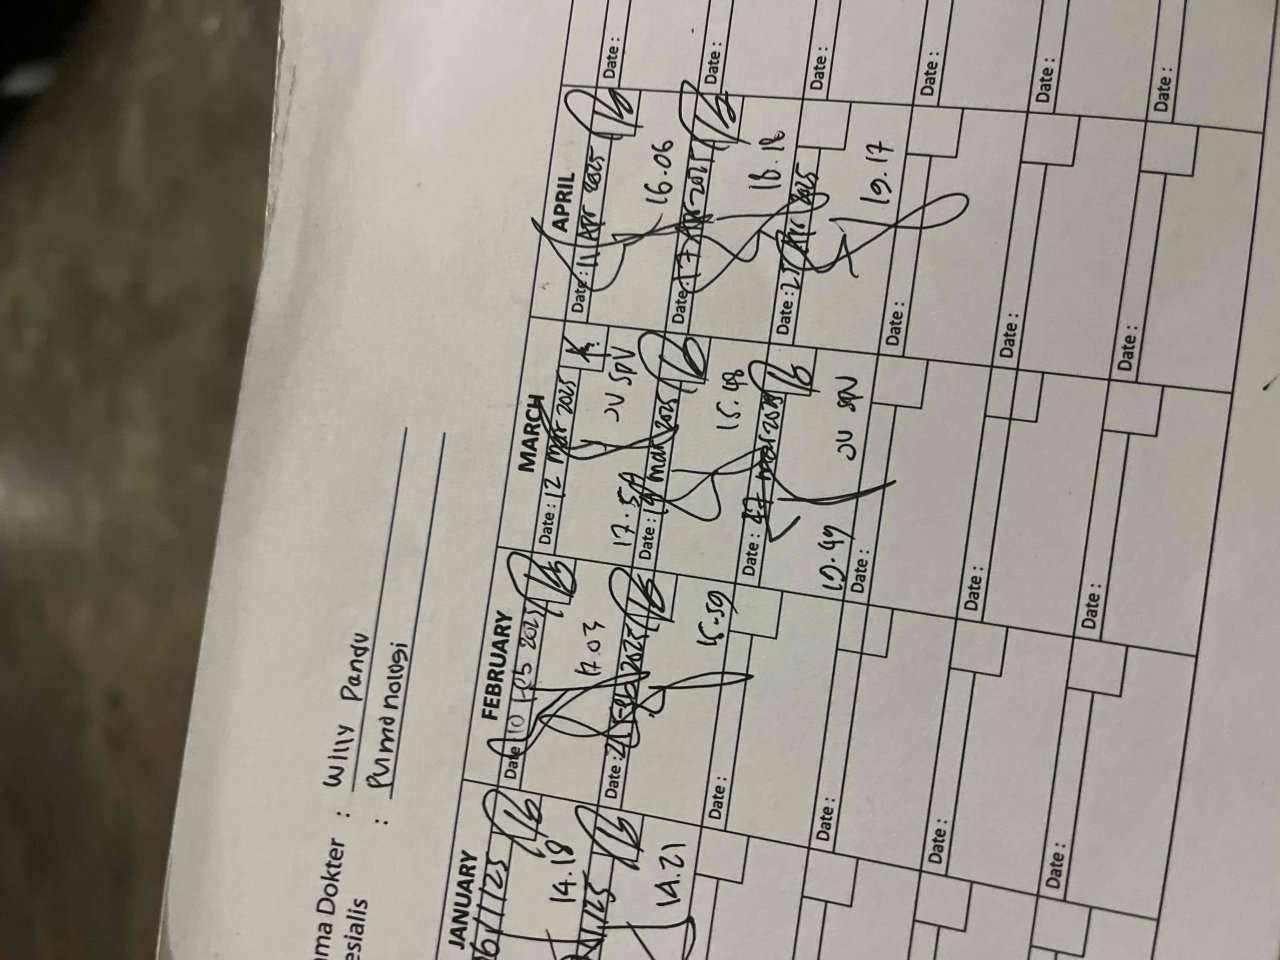 ma Dokter : Willy Pandu
esialis : Pulmonologi
JANUARY
FEBRUARY
MARCH
APRIL
6/1/25
14.18
/25
14.21
Date: 10 Feb 2025
17.03
Date: 2025
15.59
Date:
Date:
Date:
Date:
Date: 12 Mar 2025
17.
SPV
Date: 19 Mar 2025
15.48
Date: 27 Mar 2025
19.49
SPV
Date:
Date:
Date:
Date: 11 Apr 2025
16.06
Date: 17 Apr 2025
18.18
Date: 25 Apr 2025
19.17
Date:
Date:
Date:
Date:
Date:
Date:
Date:
Date:
Date: